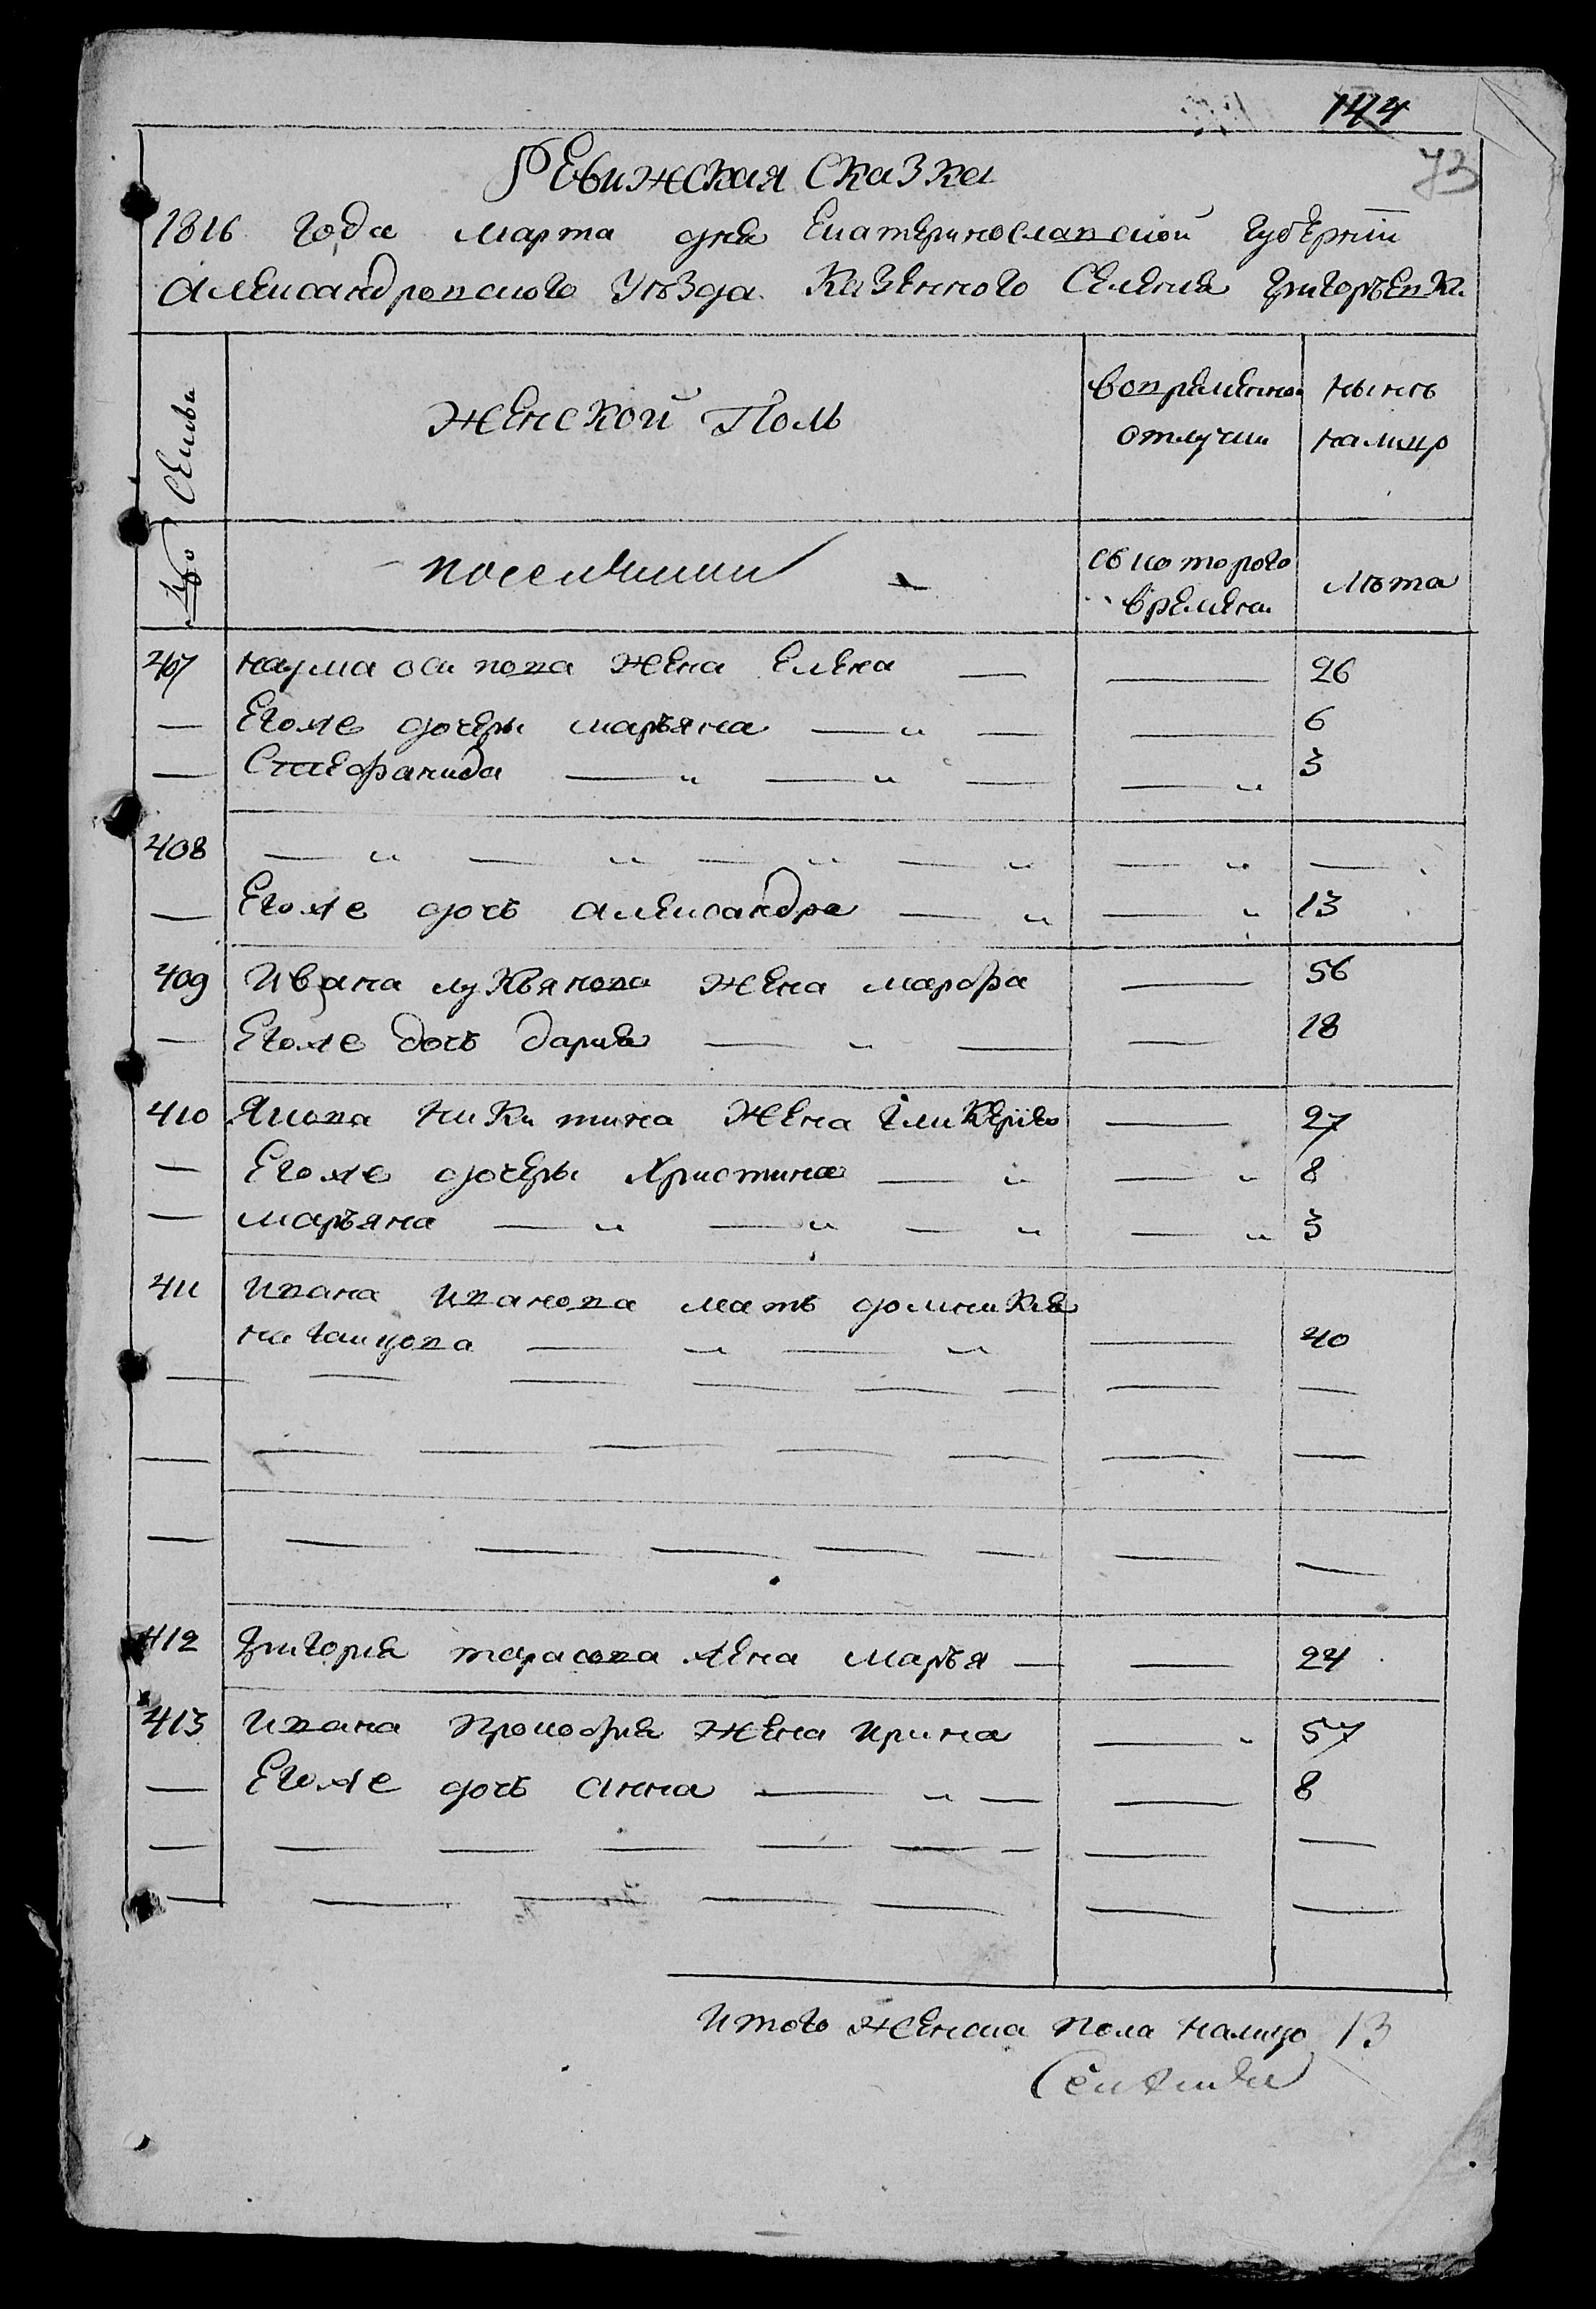 144
73
Ревижская сказка
1816 года марта дня Екатеринославской губернии
Александровского уѣзда казенного селения Григорьевки
№ Семьи
Женской Полъ
во временной отлучки
нынѣ налицо
поселянии
съ которого времени
лѣта
407 наума осипова жена Елена — — 26
— Егоже дочери маръяна — „ — — 6
— Стефанида — „ — „ — — „ 3
408 — „ — „ — „ — „ — „ —
— Егоже дочъ александра — „ — „ 13
409 Ивана лукьянова жена марфа — 56
— Егоже дочъ дария — „ — — 18
410 Якова никитина жена гликерия — 27
— Егоже дочери христина — „ — „ 8
— маръяна — „ — „ — „ — „ 3
411 ивана иванова мать домникия
нагайцова — „ — „ — 40
— — — — — — — —
— — — — — — — —
— — — — — — — —
412 григория тарасова жена маръя — — 24
413 ивана прокофия жена ирина — „ 57
— Егоже дочъ анна — „ — — 8
— — — — — — — —
— — — — — — —
Итого женска пола налицо 13